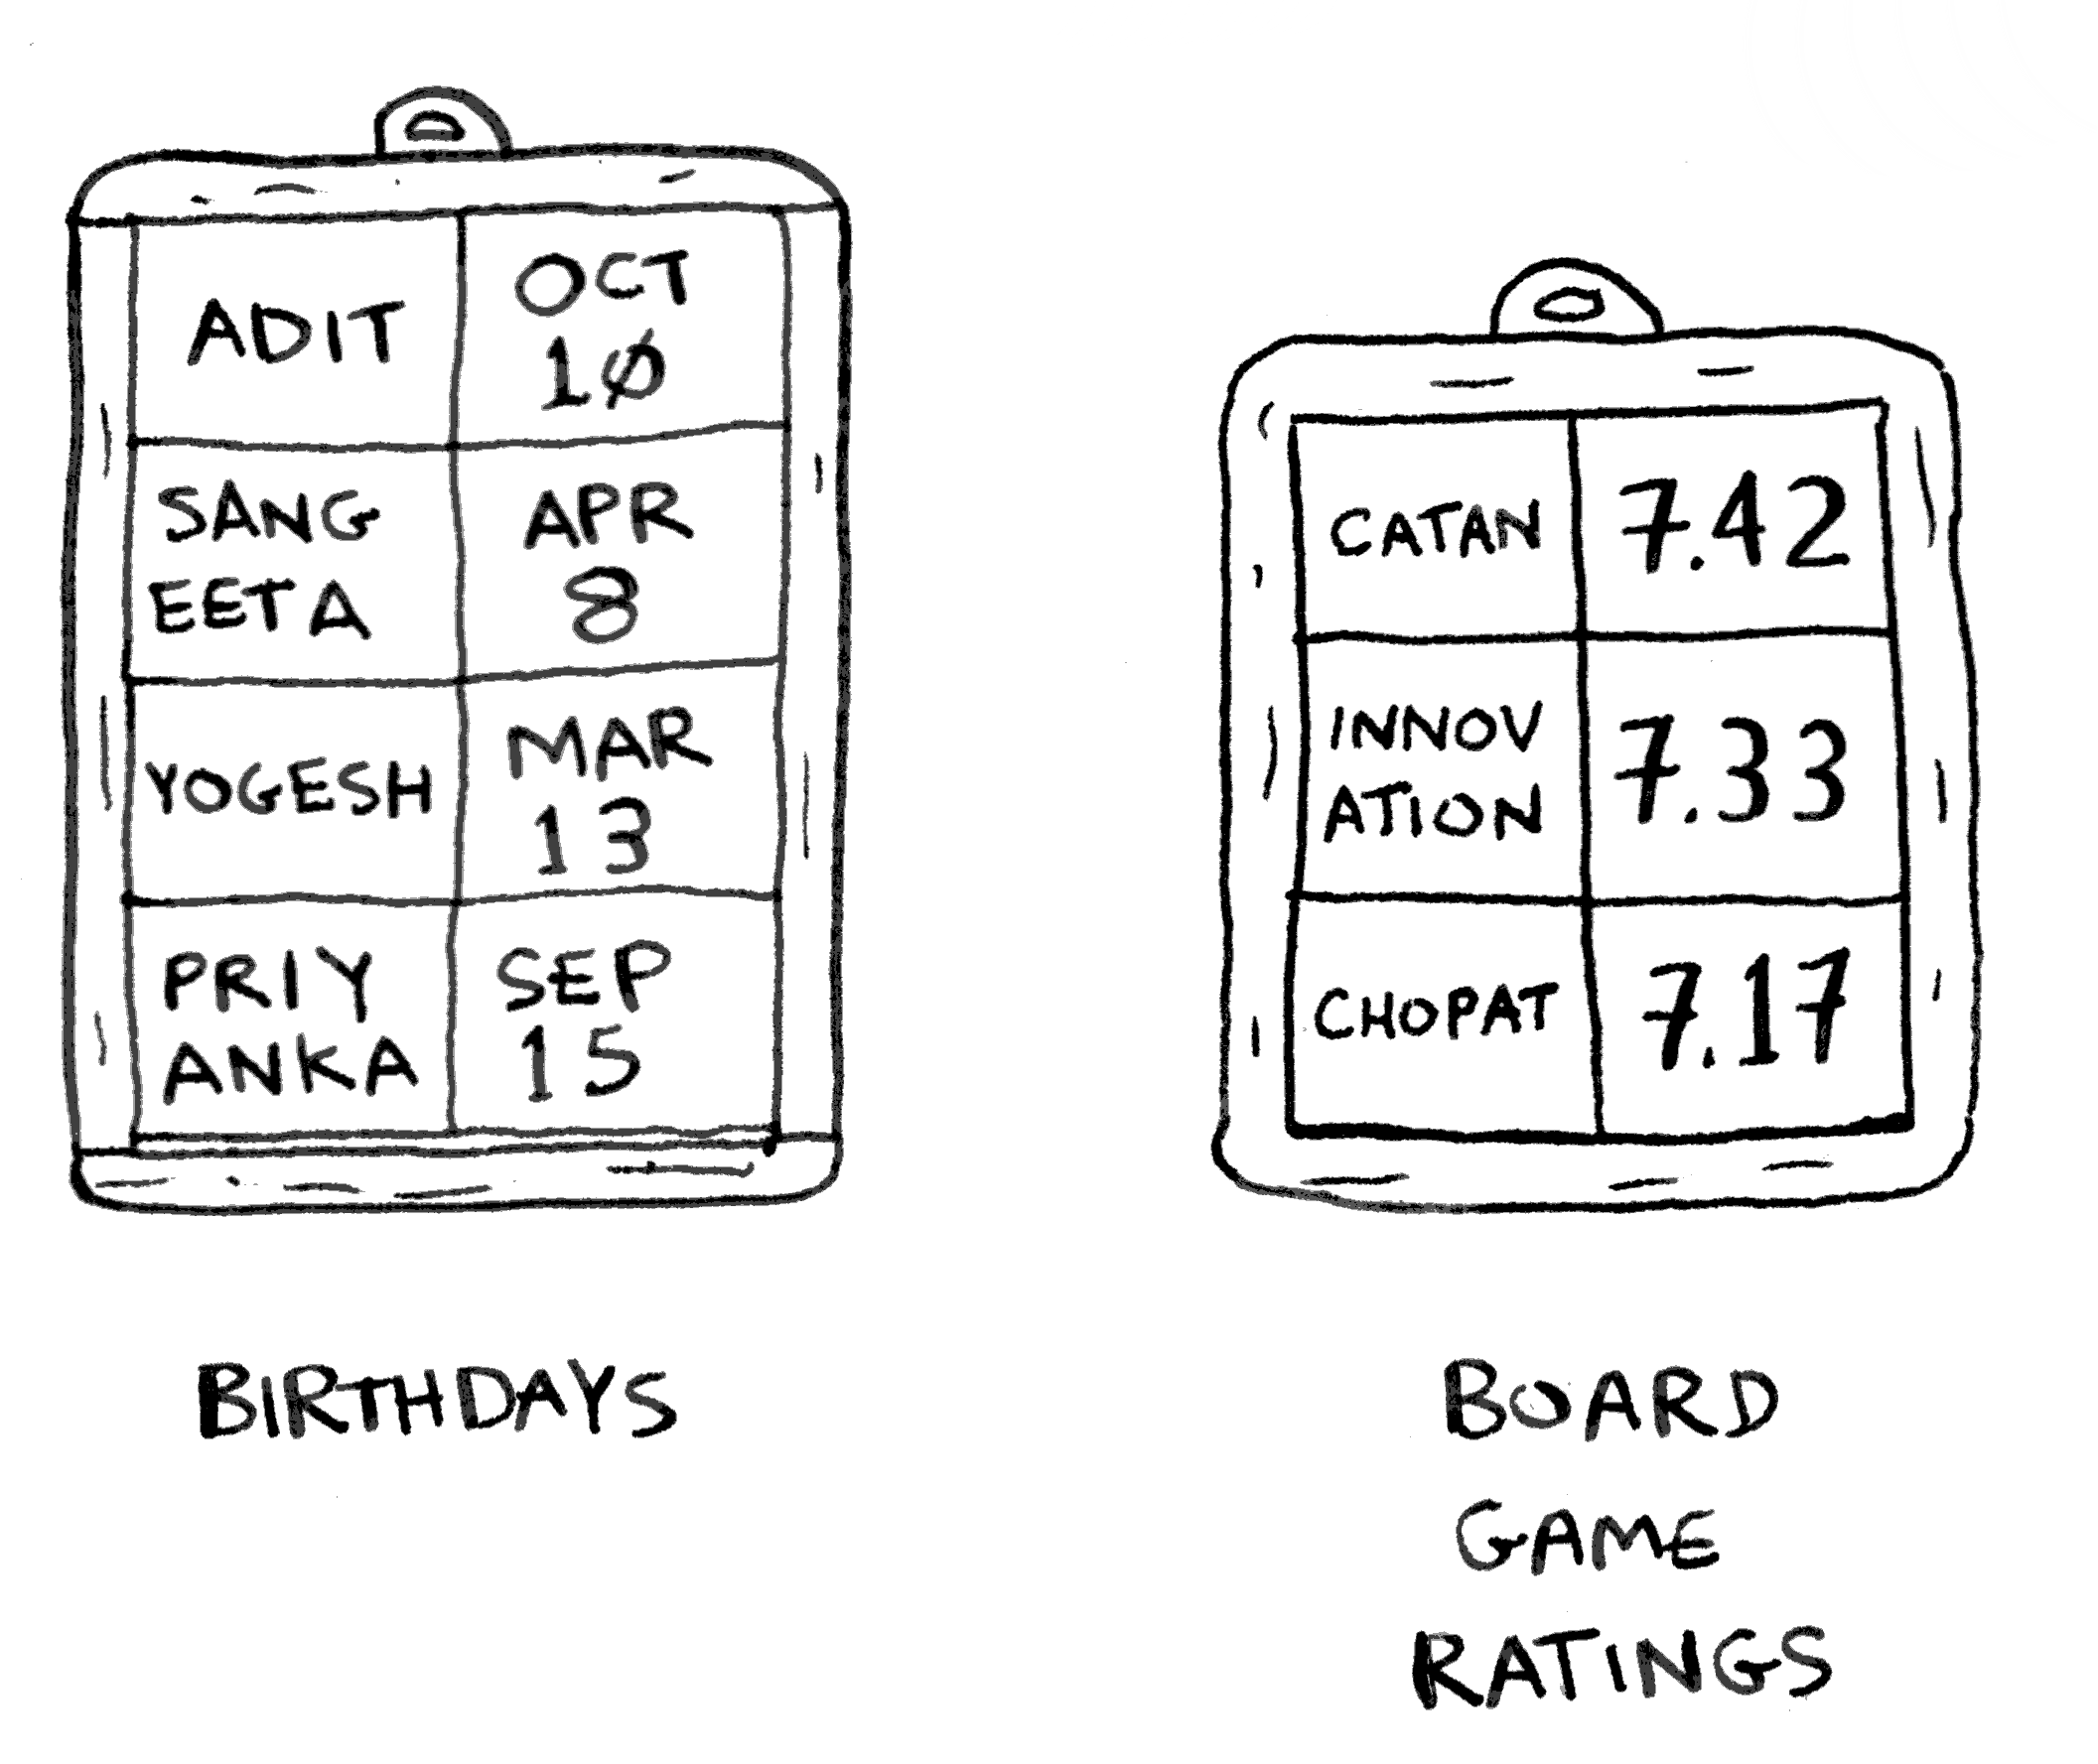 ADIT
OCT
10
SANG
EETA
APR
8
YOGESH
MAR
13
PRIY
ANKA
SEP
15
BIRTHDAYS
CATAN
7.42
INNOV
ATION
7.33
CHOPAT
7.17
BOARD
GAME
RATINGS